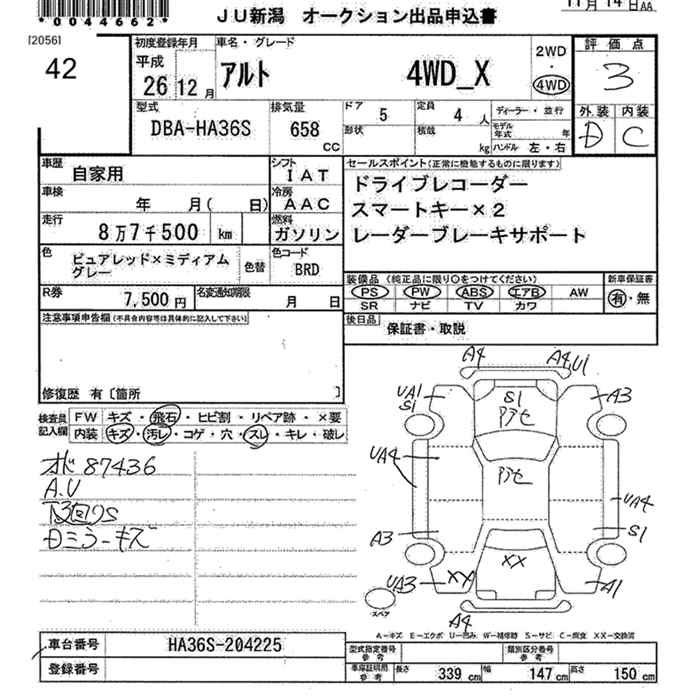 *0044662*
JU新潟 オークション出品申込書
11月14日AA
[2056]
42
初度登録年月
平成
26 12月
車名・グレード
アルト 4WD_X
2WD
・
4WD
評価点
3
型式
DBA-HA36S
排気量
658
CC
ドア 5
定員 4 人
形状
積載 kg
ディーラー・並行
モデル年式 年
ハンドル 左・右
外装 内装
D C
車歴
自家用
シフト
IAT
車検
年 月( 日)
冷房
AAC
走行
8万7千500 km
燃料
ガソリン
色
ピュアレッド×ミディアムグレー
色替
色コード
BRD
R券
7,500円
名変通知期限
月 日
セールスポイント(正常に機能するものに限ります)
ドライブレコーダー
スマートキー×2
レーダーブレーキサポート
装備品(純正品に限り○をつけてください)
PS PW ABS エアB AW
SR ナビ TV カワ
新車保証書
有・無
後日品 保証書・取説
注意事項申告欄(不具合内容等は具体的に記入して下さい)
修復歴 有〔箇所 〕
検査員記入欄
FW キズ・飛石・ヒビ割・リペア跡・×要
内装 キズ・汚レ・コゲ・穴・スレ・キレ・破レ
オド 87436
A.U
下回りS
Dミラーキズ
A4 A4,U1
UA1 S1 S1 アセ A3
UA4 アセ
UA4
A3 S1
UA3 XX XX A1
A4
スペア
A－キズ E－エクボ U－凹み W－補修跡 S－サビ C－腐食 XX－交換済
車台番号 HA36S-204225
登録番号
型式指定番号 参考
類別区分番号 参考
車庫証明用 参考 長さ 339 cm 幅 147 cm 高さ 150 cm